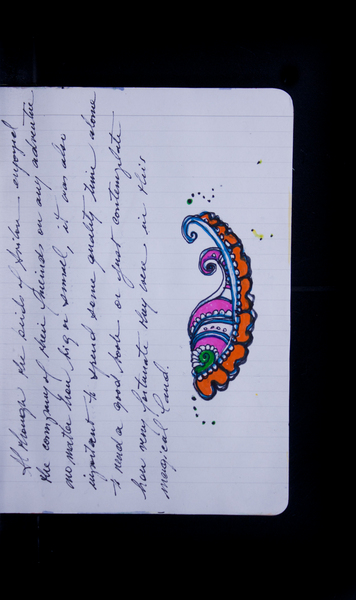 Although the birds of broilin enjoyed
the company of their friends on any adventure
no matter how big or small, it was also
important to spend some quality time alone
to read a good book or just contemplate
how very fortunate they were in this
magical land.